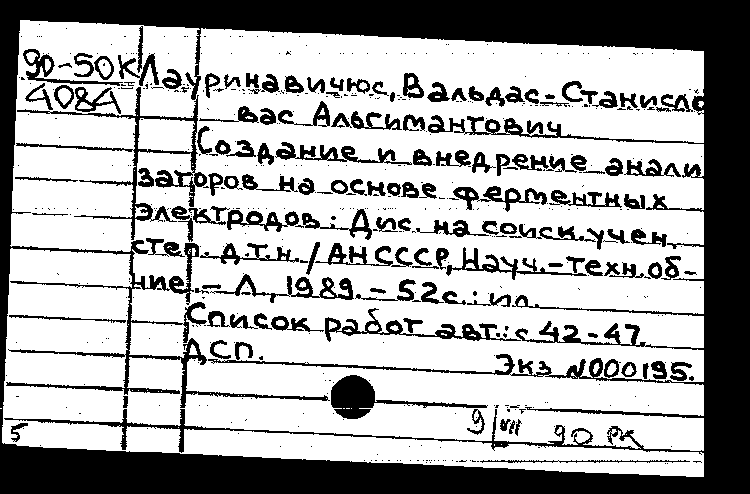 90-50К Лауринавичюс, Вальдас-Станисло
4084 вас Альгимантович
Создание и внедрение анали
заторов на основе ферментных
электродов: Дис. на соиск. учен.
степ. д.т.н. / АН СССР, Науч.-техн. об-
ние. – Л., 1989. – 52с.: ил.
Список работ авт.: с 42-47.
ДСП. Экз №000195.
9/VII 90 РК
5